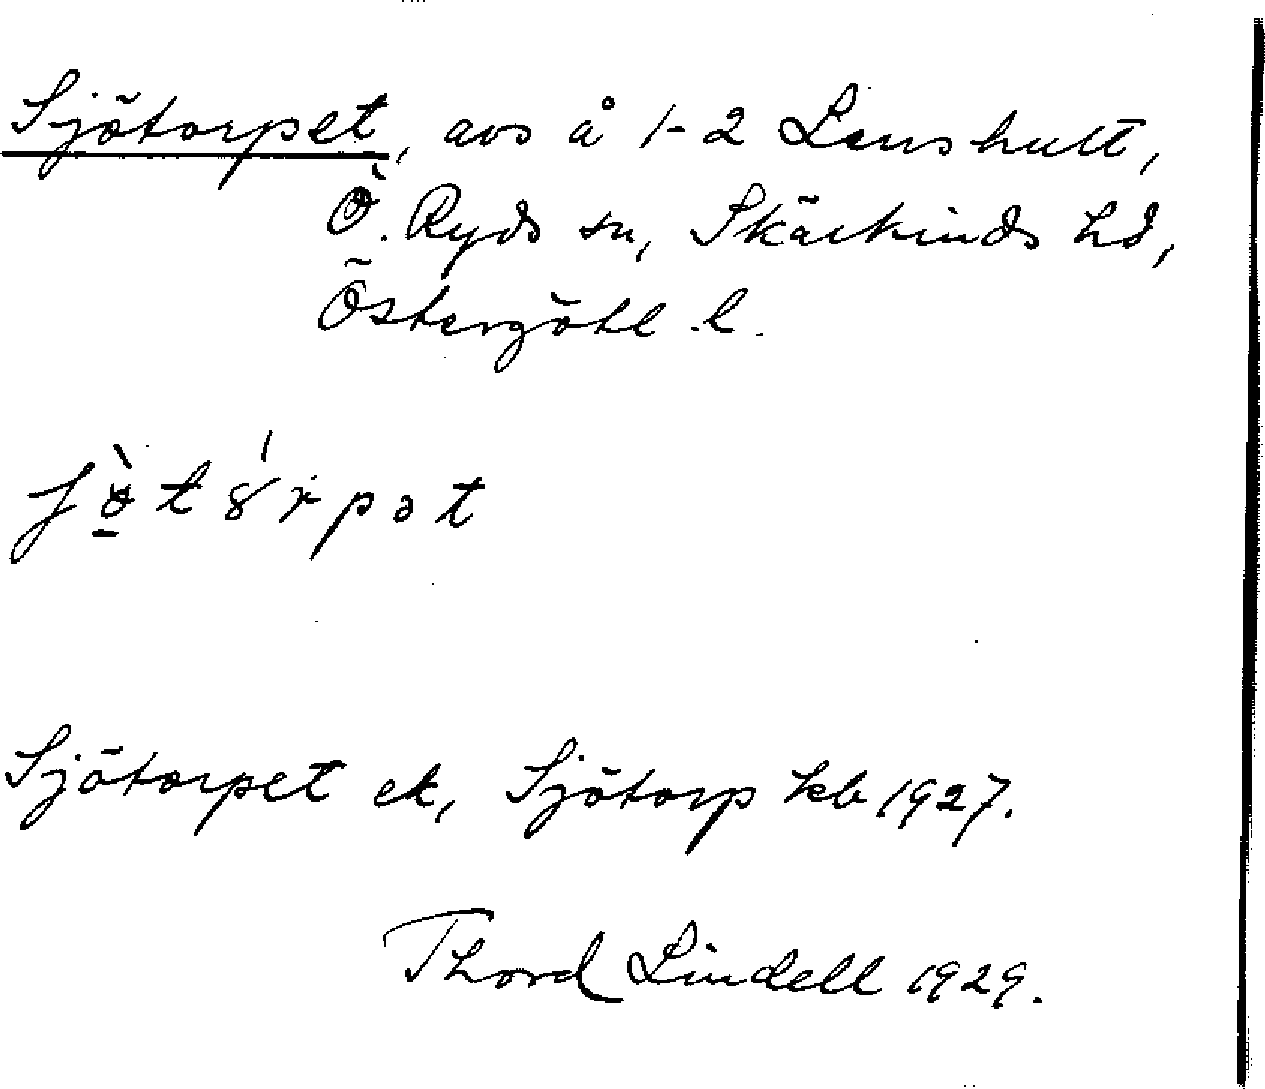 Sjötorpet, avs å 1-2 Lenshult,
Ö. Ryds sn, Skärkinds hd,
Östergötl. l.
Sjötorpet ek, Sjötorp kb 1927.
Thord Lindell 1929.